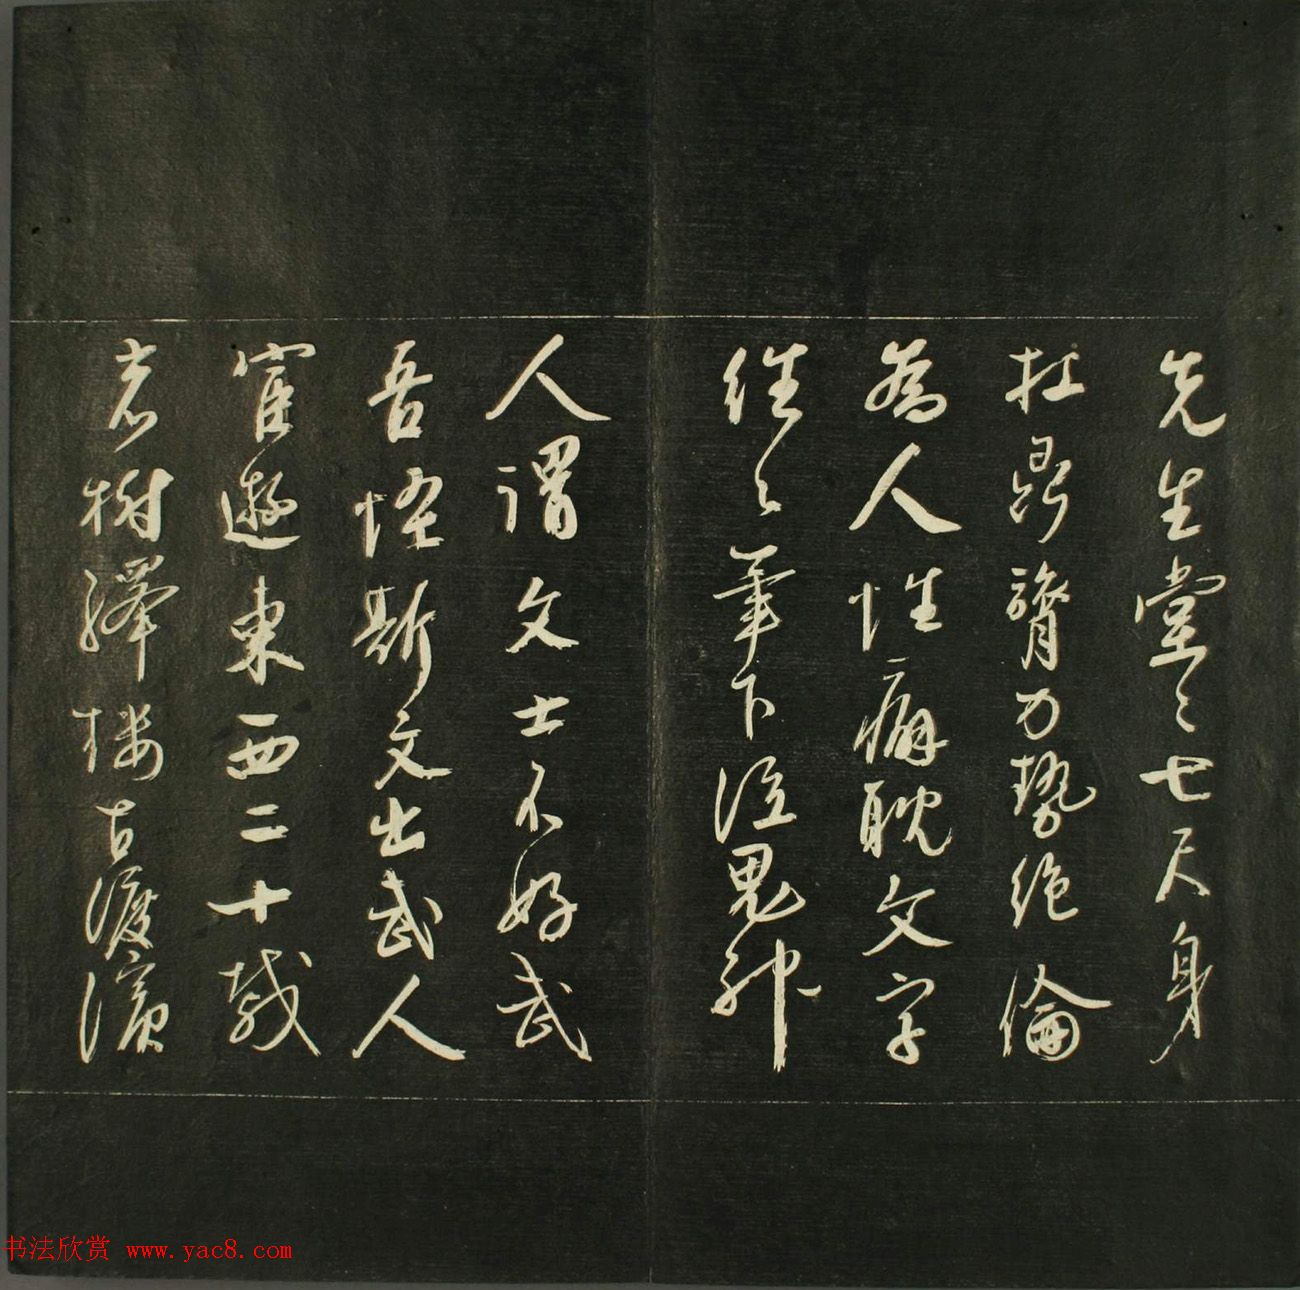 先生堂〻七尺身
扛鼎膂力势絶倫
為人性癖耽文字
往〻筆下泣鬼神
人謂文士不好武
吾怪斯文出武人
宦遊東西二十載
老樹 楼古渡濱
书法欣赏 www.yac8.com